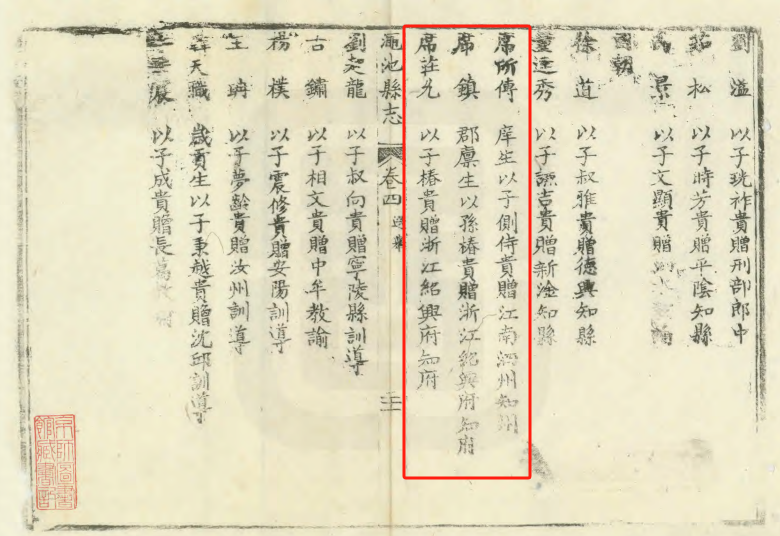 劉溢 以子珖祚貴贈刑部郎中
茹松 以子時芳貴贈平陰知縣
景 以子文顯貴贈
國朝
徐道 以子叔雅貴贈德興知縣
董進秀 以子讜言貴贈新淦知縣
席所傳 庠生以子側侍貴贈江南泗州知州
席鎮 郡廩生以孫椿貴贈浙江紹興府知府
席莊九 以子椿貴贈浙江紹興府知府
澠池縣志 卷四 選舉
劉起龍 以子叔向貴贈寧陵縣訓導
古鏽 以子相文貴贈中牟教諭
楊樸 以子震修貴贈安陽訓導
王 以子夢齡貴贈汝州訓導
天職 歲貢生以子秉越貴贈沈邱訓導
以子成貴贈長葛